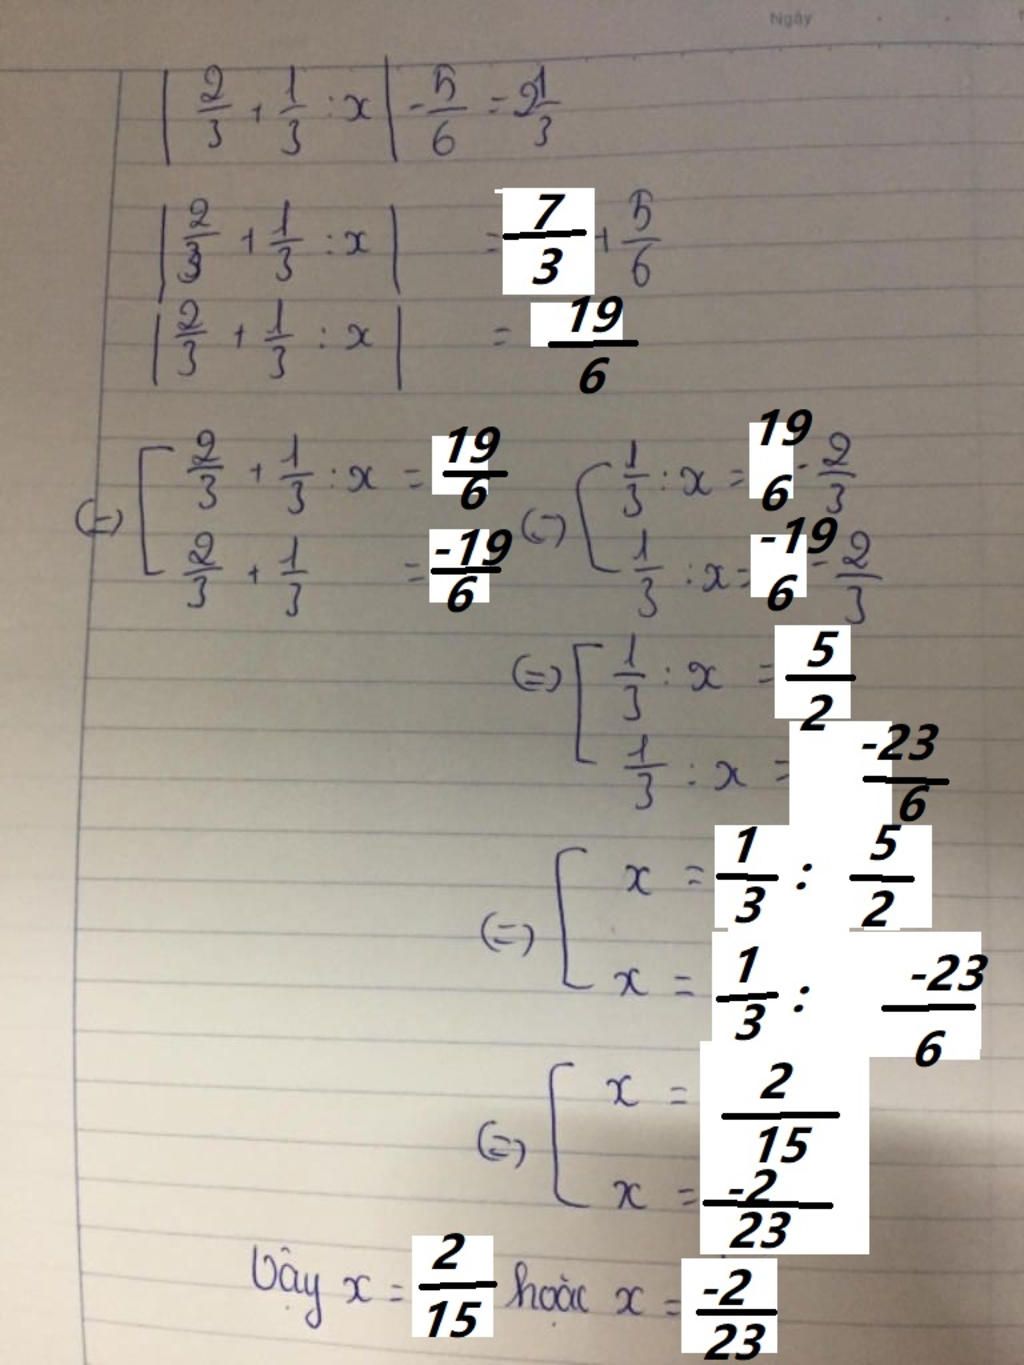 Ngày
| 2/3 + 1/3 : x | - 5/6 = 2 1/3
| 2/3 + 1/3 : x | = 7/3 + 5/6
| 2/3 + 1/3 : x | = 19/6
(=) [ 2/3 + 1/3 : x = 19/6 (=) [ 1/3 : x = 19/6 - 2/3
2/3 + 1/3 = -19/6 1/3 : x = -19/6 - 2/3
(=) [ 1/3 : x = 5/2
1/3 : x = -23/6
(=) [ x = 1/3 : 5/2
x = 1/3 : -23/6
(=) [ x = 2/15
x = -2/23
Vậy x = 2/15 hoặc x = -2/23